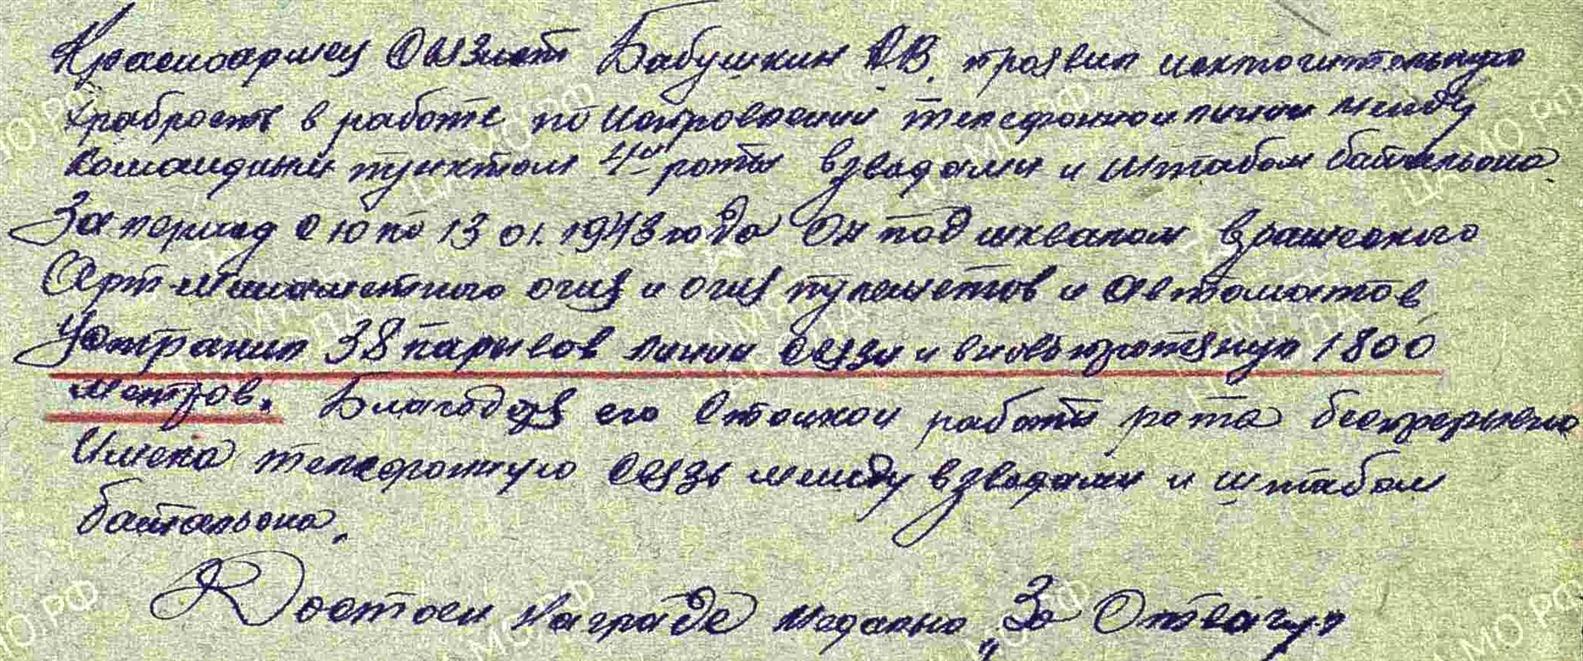 Красноармеец Связист Бабушкин А.В. проявил исключительную
храбрость в работе по исправлении телефонной линии между
командным пунктом 4ой роты взводами и штабом батальона.
За период с 10 по 13 01. 1943 года Он под шквалом вражеского
Арт-минометного огня и огня пулеметов и автоматов
Устранил 38 парывов линии связи и вновь протянул 1800
метров. Благодаря его стойкой работы рота беспрерывно
Имела телефонную связь между взводами и штабом
батальона.
Достоен награде медалью „За Отвагу"
ЦАМО РФ